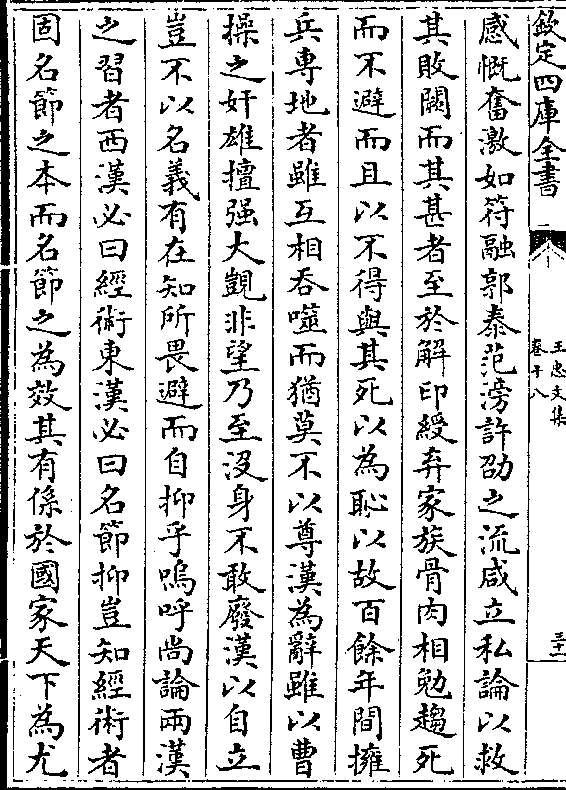 欽定四庫全書
王忠文集
卷十八
三十一
感慨奮激如符融郭泰范滂許劭之流咸立私論以救
其敗闕而其甚者至於解印綬弃家族骨肉相勉趨死
而不避而且以不得與其死以為恥以故百餘年間擁
兵專地者雖互相吞噬而猶莫不以尊漢為辭雖以曹
操之奸雄擅强大覬非望乃至沒身不敢廢漢以自立
豈不以名義有在知所畏避而自抑乎嗚呼尚論兩漢
之習者西漢必曰經術東漢必曰名節抑豈知經術者
固名節之本而名節之為效其有係於國家天下為尤